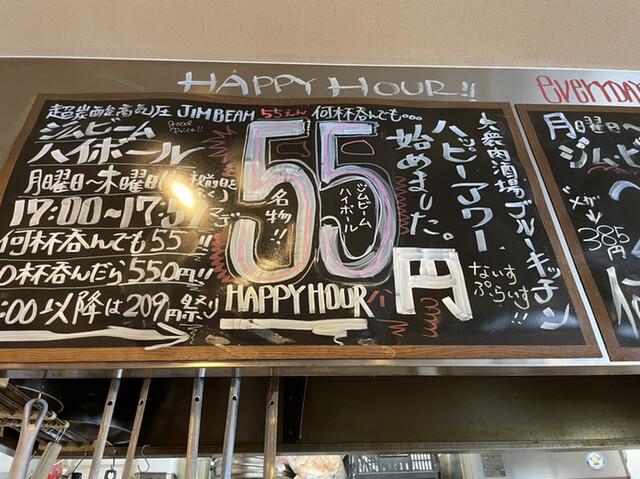 HAPPY HOUR!!
超炭酸高気圧 JIM BEAM 55えん 何杯呑んでも。。。
good price!!
ジムビーム
ハイボール
月曜日〜木曜日
17:00〜17:
何杯呑んでも55
杯呑んだら550円!!
:00以降は209円祭り
55円
名物!!
ジムビーム
ハイボール
HAPPY HOUR
大衆肉酒場ブルーキッチン
ハッピーアワー
始めました。
ないす
ぷらいす!!
月曜日〜
ジムビ
メガ
385円